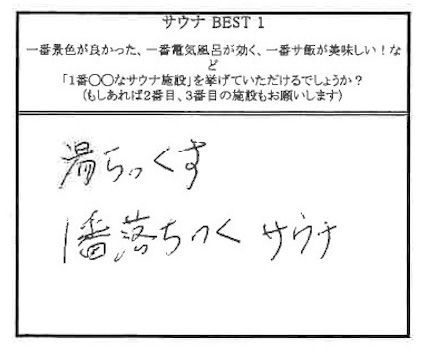 サウナ BEST 1
一番景色が良かった、一番電気風呂が効く、一番サ飯が美味しい！な
ど
「1番〇〇なサウナ施設」を挙げていただけるでしょうか？
(もしあれば2番目、3番目の施設もお願いします)
湯らっくす
1番落ちつく サウナ